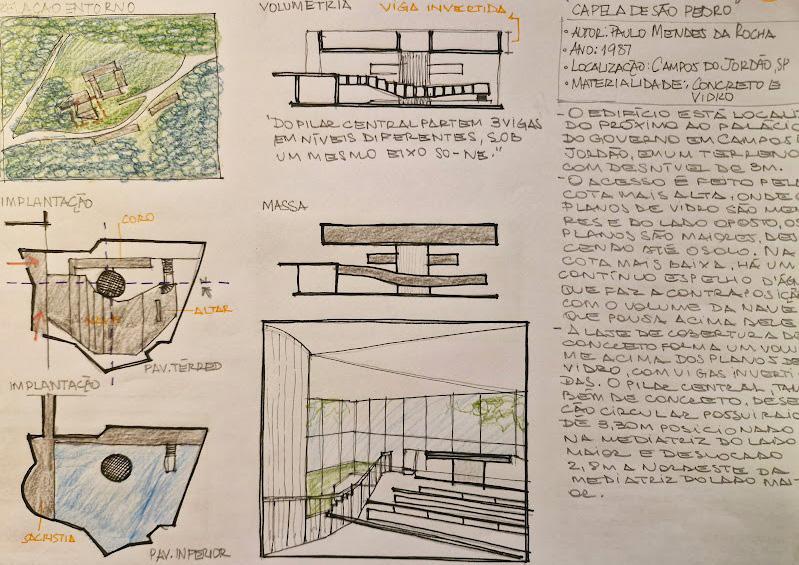 RELAÇÃO ENTORNO
IMPLANTAÇÃO
CORO
NAVE
ALTAR
PAV. TÉRREO
IMPLANTAÇÃO
SACRISTIA
PAV. INFERIOR
VOLUMETRIA
VIGA INVERTIDA
"DO PILAR CENTRAL PARTEM 3 VIGAS
EM NÍVEIS DIFERENTES, SOB
UM MESMO EIXO SO-NE."
MASSA
CAPELA DE SÃO PEDRO
• AUTOR: PAULO MENDES DA ROCHA
• ANO: 1987
• LOCALIZAÇÃO: CAMPOS DO JORDÃO, SP
• MATERIALIDADE: CONCRETO E
VIDRO
- O EDIFÍCIO ESTÁ LOCALI
DO PRÓXIMO AO PALÁCIO
DO GOVERNO EM CAMPOS
JORDÃO, EM UM TERRENO
COM DESNÍVEL DE 3M.
- O ACESSO É FEITO PELA
COTA MAIS ALTA, ONDE O
PLANOS DE VIDRO SÃO MENO
RES E DO LADO OPOSTO, OS
PLANOS SÃO MAIORES, DES
CENDO ATÉ O SOLO. NA
COTA MAIS BAIXA, HÁ UM
CONTÍNUO ESPELHO D'ÁG
QUE FAZ A CONTRAPOSIÇÃ
COM O VOLUME DA NAVE
QUE POUSA ACIMA DELE
- A LAJE DE COBERTURA DE
CONCRETO FORMA UM VOLU
ME ACIMA DOS PLANOS DE
VIDRO, COM VIGAS INVERTI
DAS. O PILAR CENTRAL, TAM
BÉM DE CONCRETO, DE SE
ÇÃO CIRCULAR POSSUI RAIO
DE 3,30M POSICIONADO
NA MEDIATRIZ DO LADO
MAIOR E DESLOCADO
2,8M A NORDESTE DA
MEDIATRIZ DO LADO MAI
OR.